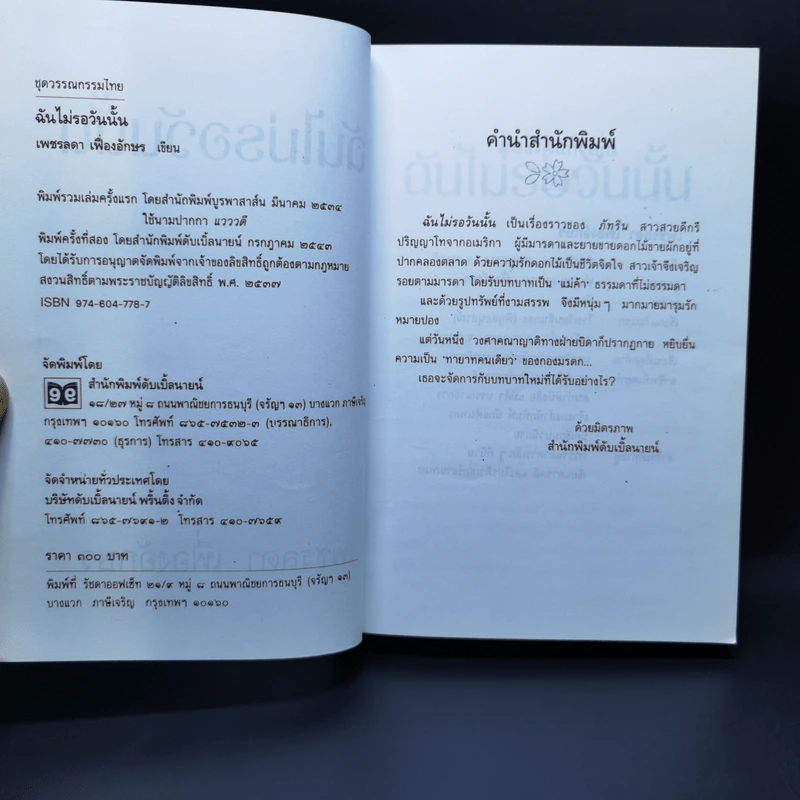 ชุดวรรณกรรมไทย
ฉันไม่รอวันนั้น
เพชรลดา เฟื่องอักษร เขียน
พิมพ์รวมเล่มครั้งแรก โดยสำนักพิมพ์บูรพาสาส์น มีนาคม ๒๕๓๔
ใช้นามปากกา แวววดี
พิมพ์ครั้งที่สอง โดยสำนักพิมพ์ดับเบิ้ลนายน์ กรกฎาคม ๒๕๔๓
โดยได้รับการอนุญาตจัดพิมพ์จากเจ้าของลิขสิทธิ์ถูกต้องตามกฎหมาย
สงวนสิทธิ์ตามพระราชบัญญัติลิขสิทธิ์ พ.ศ. ๒๕๓๗
ISBN 974-604-778-7
จัดพิมพ์โดย
สำนักพิมพ์ดับเบิ้ลนายน์
๑๘/๒๗ หมู่ ๘ ถนนพาณิชยการธนบุรี (จรัญฯ ๑๓) บางแวก ภาษีเจริญ
กรุงเทพฯ ๑๐๑๖๐ โทรศัพท์ ๘๖๕-๗๕๓๒-๓ (บรรณาธิการ).
๔๑๐-๗๗๓๐ (ธุรการ) โทรสาร ๔๑๐-๙๐๖๕
จัดจำหน่ายทั่วประเทศโดย
บริษัทดับเบิ้ลนายน์ พริ้นติ้ง จำกัด
โทรศัพท์ ๘๖๕-๗๖๙๑-๒ โทรสาร ๔๑๐-๗๖๕๙
ราคา ๓๐๐ บาท
พิมพ์ที่ รัชดาออฟเซ็ท ๒๑/๙ หมู่ ๘ ถนนพาณิชยการธนบุรี (จรัญฯ ๑๓)
บางแวก ภาษีเจริญ กรุงเทพฯ ๑๐๑๖๐
คำนำสำนักพิมพ์
ฉันไม่รอวันนั้น เป็นเรื่องราวของ ภัทริน สาวสวยดีกรี
ปริญญาโทจากอเมริกา ผู้มีมารดาและยายขายดอกไม้ขายผักอยู่ที่
ปากคลองตลาด ด้วยความรักดอกไม้เป็นชีวิตจิตใจ สาวเจ้าจึงเจริญ
รอยตามมารดา โดยรับบทบาทเป็น 'แม่ค้า' ธรรมดาที่ไม่ธรรมดา
และด้วยรูปทรัพย์ที่งามสรรพ จึงมีหนุ่มๆ มากมายมารุมรัก
หมายปอง
แต่วันหนึ่ง วงศาคณาญาติทางฝ่ายบิดาก็ปรากฏกาย หยิบยื่น
ความเป็น 'ทายาทคนเดียว' ของกองมรดก...
เธอจะจัดการกับบทบาทใหม่ที่ได้รับอย่างไร?
ด้วยมิตรภาพ
สำนักพิมพ์ดับเบิ้ลนายน์